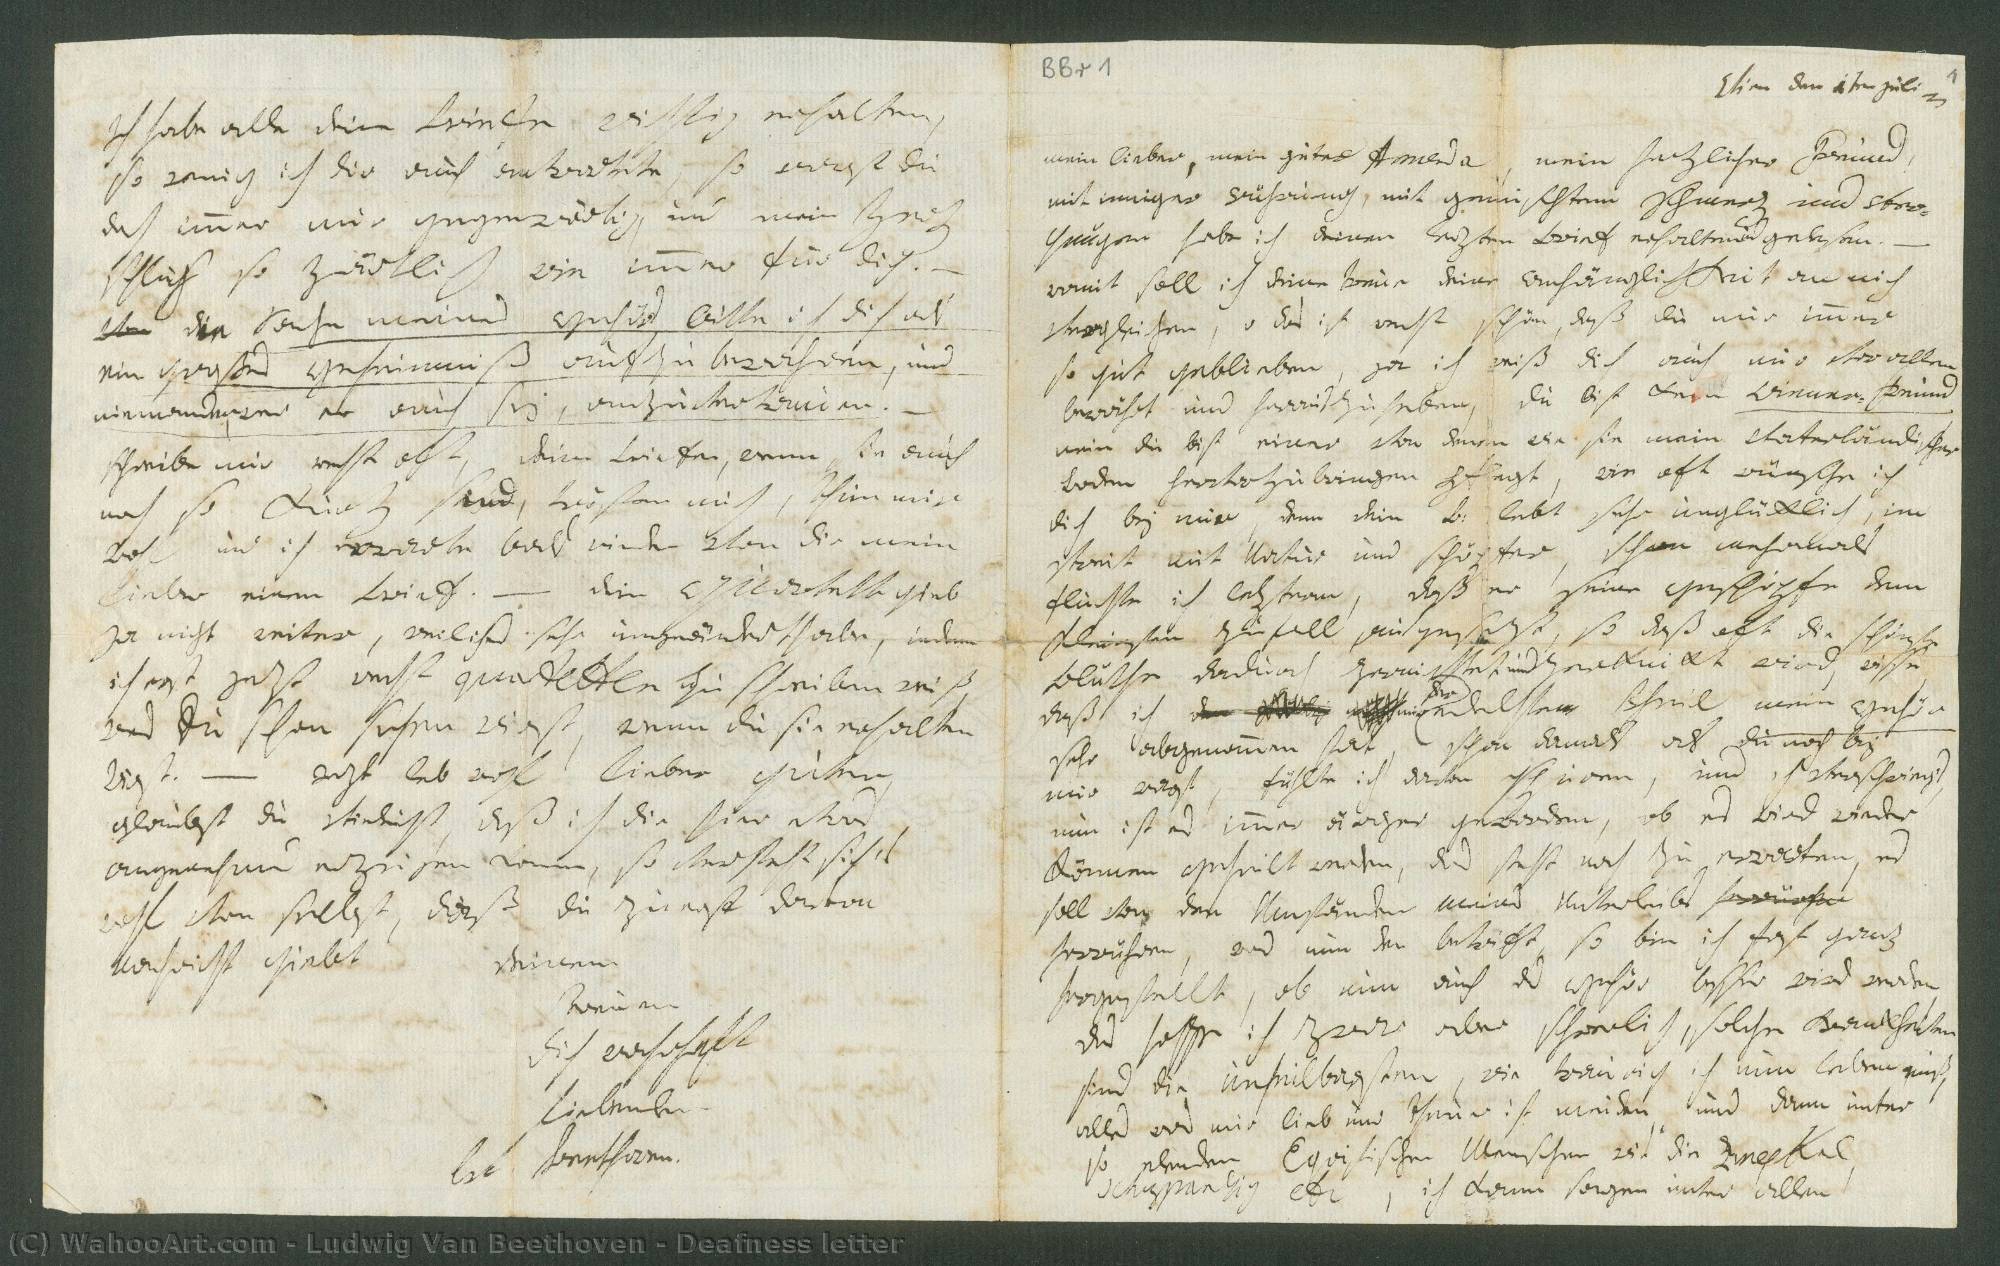 Ich habe alle deine Briefe richtig erhalten,
so wenig ich dir auch antwortete, so warst du
doch immer mir gegenwärtig und mein Herz
schlägt so zärtlich wie immer für dich. —
die Sache meines Gehörs bitte ich dich als
ein großes Geheimniß aufzubewahren, und
niemanden, wer er auch sey, anzuvertrauen. —
schreibe mir recht oft, deine Briefe, wenn sie auch
noch so kurz sind, trösten mich, thun mir
wohl, und ich erwarte bald wieder von dir mein
lieber einen Brief. — dein Quartett gieb
ja nicht weiter, weil ich es sehr umgeändert habe, indem
ich erst jetzt recht quartetten zu schreiben weiß,
was du schon sehen wirst, wenn du sie erhalten
wirst. — jezt leb wohl lieber guter,
glaubst du vieleicht, daß ich dir hier etwas
angenehmes erzeigen kann, so versteht sichs
wohl von selbst, daß du zuerst davon
nachricht giebst deinem
treuen
dich wahrhaft
liebenden
LvBeethoven.
BBr 1
1
Wien den 1ten juli
mein lieber, mein guter Amenda, mein herzlicher Freund,
mit inniger Rührung, mit gemischtem Schmerz und Ver-
gnügen habe ich deinen lezten Brief erhalten und gelesen. —
womit soll ich deine treue deine anhänglichkeit an mich
vergleichen, o das ist recht schön, daß du mir immer
so gut geblieben, ja ich weiß dich auch mir vor allen
bewährt und herauszuheben, du bist kein Wiener-Freund
nein du bist einer von denen wie sie mein vaterländischer
Boden hervorzubringen pflegt, wie oft wünsche ich
dich bey mir, denn dein B. lebt sehr unglücklich, im
streit mit Natur und schöpfer, schon mehrmals
fluchte ich leztern, daß er seine geschöpfe dem
kleinsten zufall ausgesezt, so daß oft die schönste
Blüthe dadurch zernichtet und zerknikt wird, wisse,
daß mir der edelste Theil mein gehör
sehr abgenommen hat, schon damals als du noch bey
mir warst, fühlte ich davon spuren, und ich verschwiegs,
nun ist es immer ärger geworden, ob es wird wieder
können geheilt werden, das steht noch zu erwarten, es
soll von den Umständen meines Unterleibs
herrühren, was nun den betrifft, so bin ich fast ganz
hergestellt, ob nun auch das gehör besser wird werden,
das hoffe ich zwar aber schwerlich, solche Krankheiten
sind die unheilbarsten, wie traurig ich nun leben muß,
alles was mir lieb und theuer ist meiden, und dann unter
so elenden Egoistischen Menschen wie die Zmeskal,
Schuppanzig etc, ich kann sagen unter allen
(C) WahooArt.com - Ludwig Van Beethoven - Deafness letter